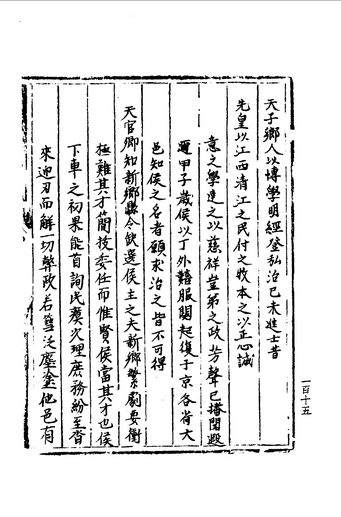 天子鄉人以博學明經登弘治己未進士昔
先皇以江西清江之民付之牧本之以正心誠
意之學達之以慈祥豈弟之政芳聲已塔閭毀
邇甲子歲侯以丁外艱服闋起復于京各省大
邑知侯之名者願求治之皆不可得
天官卿知新鄉縣令欲選侯主之夫新鄉繁劇要衝
極難其才簡技委任而惟賢侯當其才也侯
下車之初果能首詢民瘼次理庶務紛至沓
來迎刃而解一切弊政若篲泛塵塗他邑有
一百十五